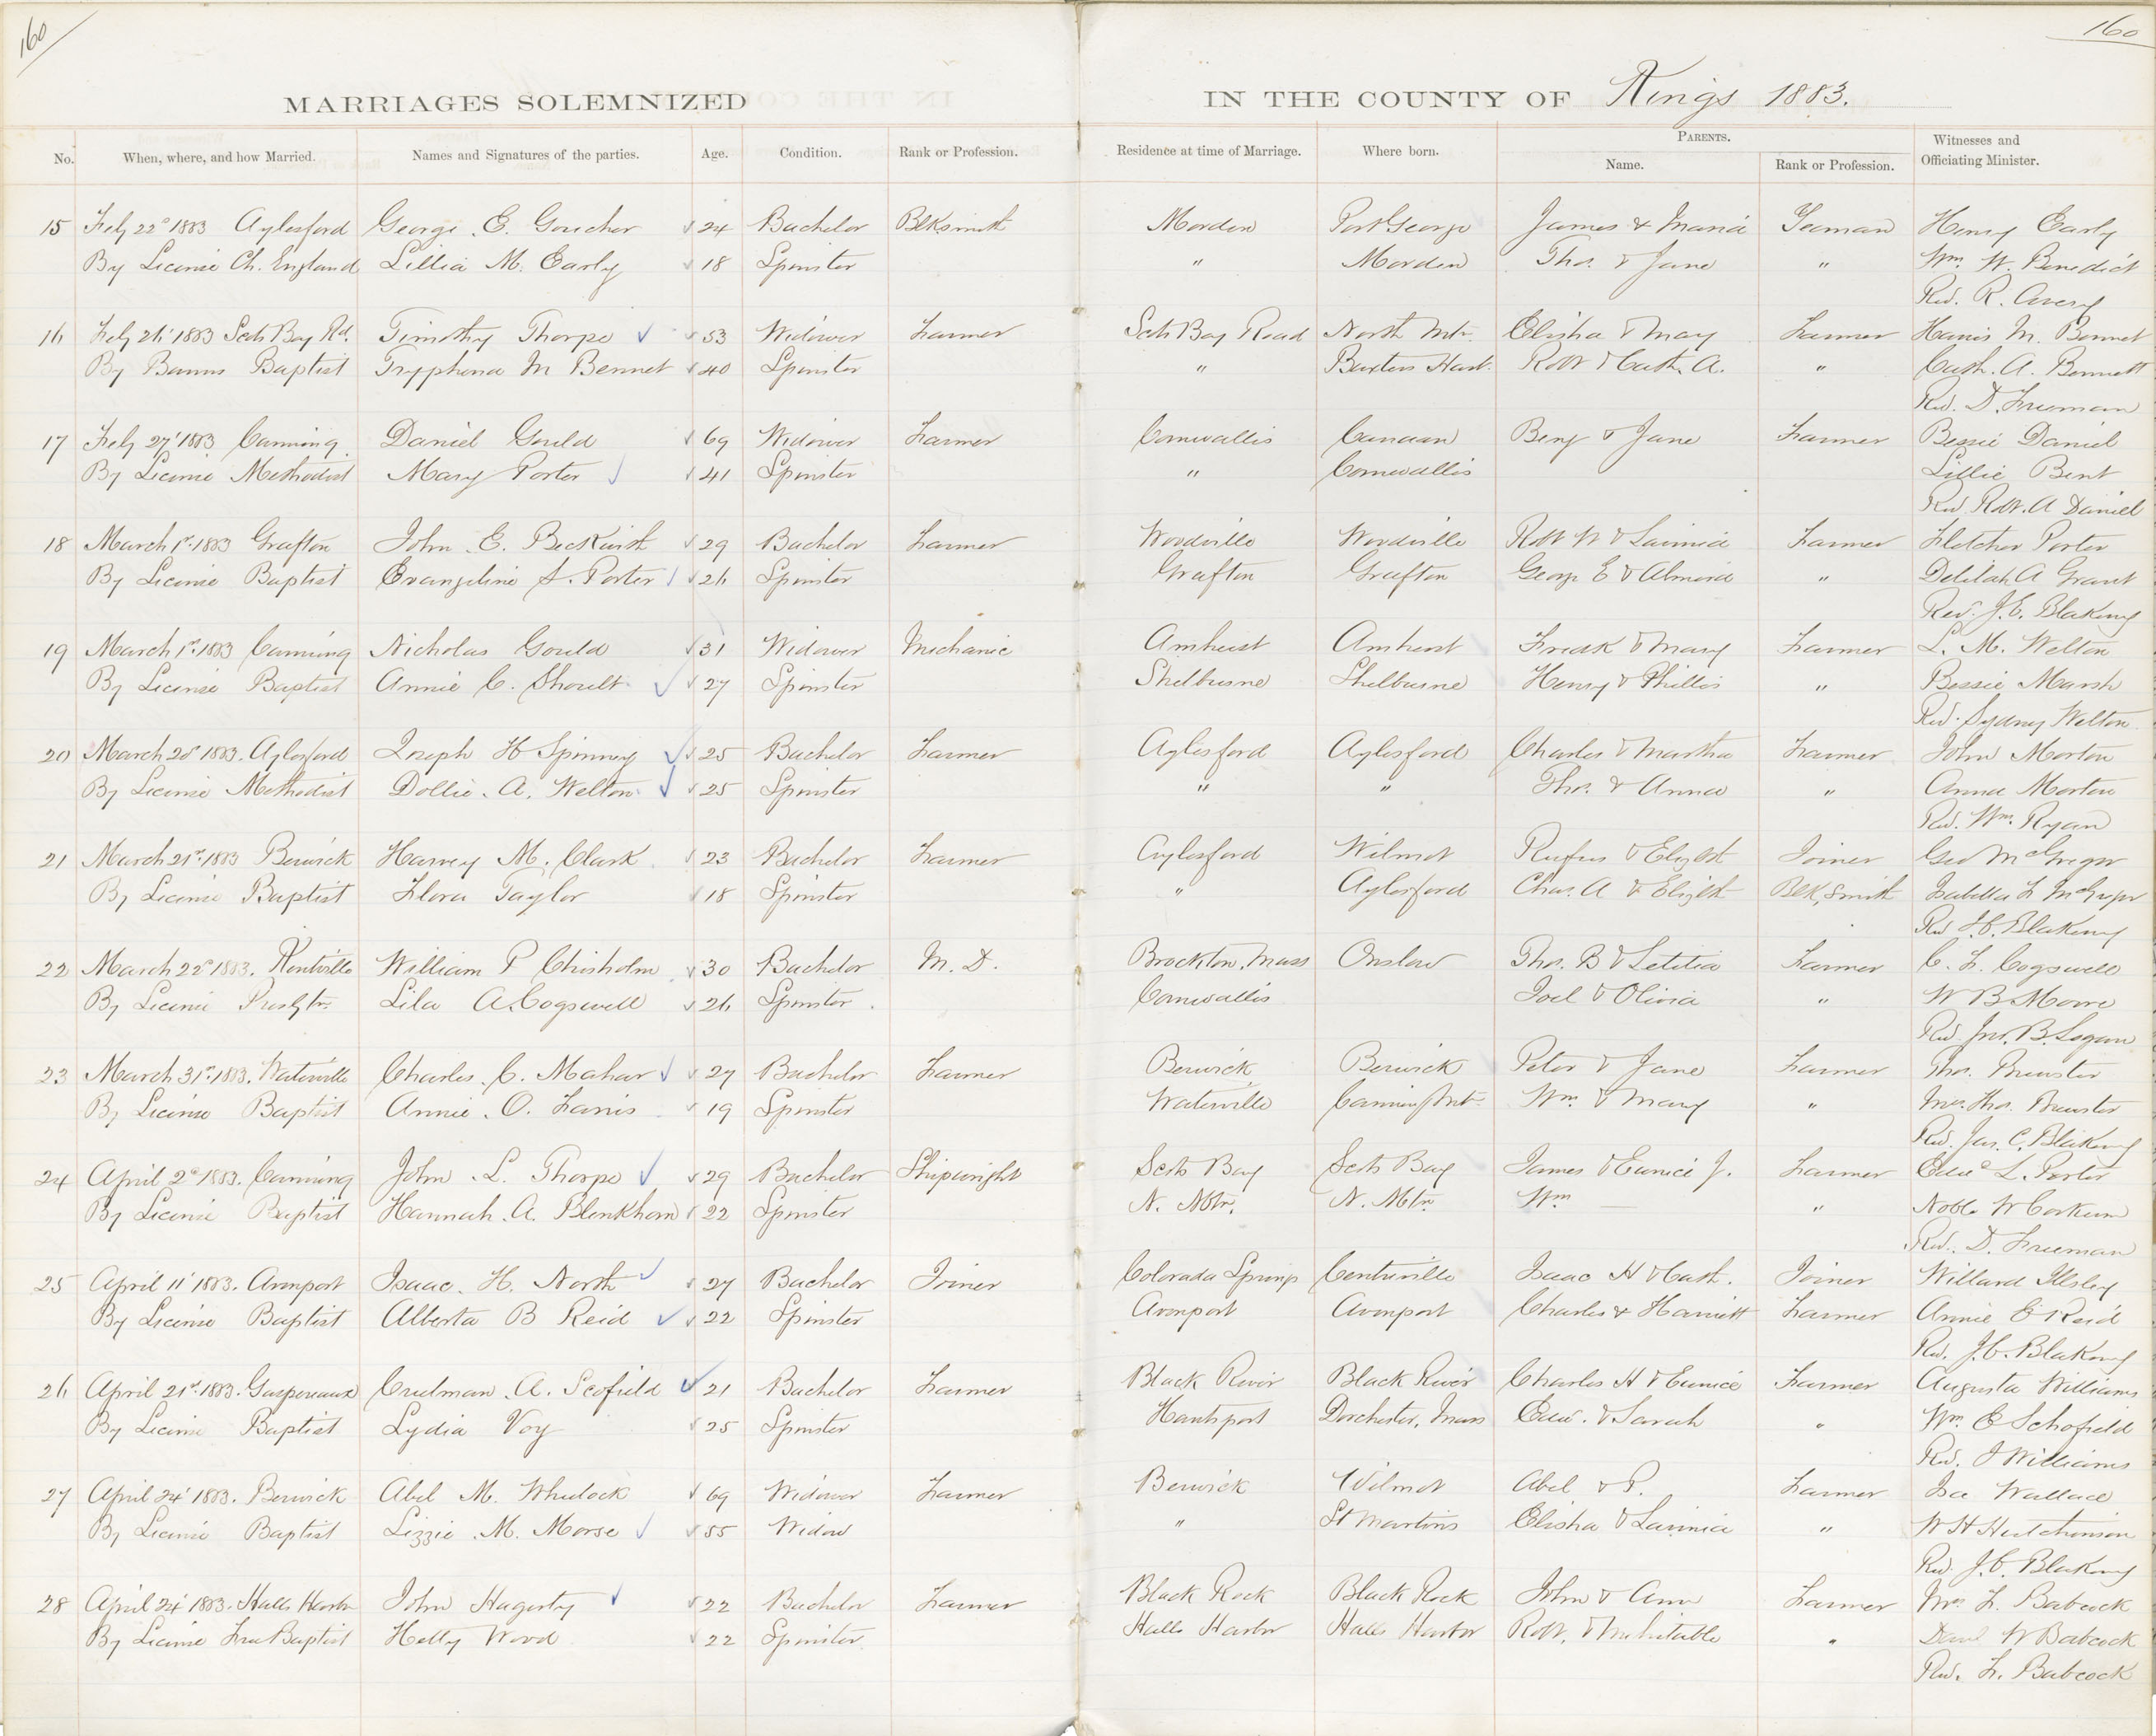 160
160
MARRIAGES SOLEMNIZED
IN THE COUNTY OF Kings 1883.
No. When, where, and how Married. Names and Signatures of the parties. Age. Condition. Rank or Profession. Residence at time of Marriage. Where born. PARENTS. Name. Rank or Profession. Witnesses and Officiating Minister.
15 Feby 22d 1883 Aylesford George E. Goucher 24 Bachelor Blksmith Morden Port George James & Maria Yeoman Henry Early
By License Ch. England Lillia M. Early 18 Spinster " Morden Thos. & Jane " Wm. W. Benedict
Rev. R. Avery
16 Feby 26' 1883 Scots Bay Rd. Timothy Thorpe 53 Widower Farmer Scots Bay Road North Mtn. Elisha & Mary Farmer Harris M. Bennet
By Banns Baptist Tryphena M Bennet 40 Spinster " Baxters Harb. Robt & Cath. A. " Cath. A. Bennett
Rev. D. Freeman
17 Feby 27' 1883 Canning. Daniel Gould 69 Widower Farmer Cornwallis Canaan Benj & Jane Farmer Bessie Daniel
By License Methodist Mary Porter 41 Spinster " Cornwallis Lillie Bent
Rev. Robt. A Daniel
18 March 1st 1883 Grafton John E. Beckwith 29 Bachelor Farmer Woodville Woodville Robt W & Lavinia Farmer Fletcher Porter
By License Baptist Evangeline S. Porter 26 Spinster Grafton Grafton George E & Almira " Delilah A Grant
Rev. J. C. Blakeny
19 March 1st 1883 Canning Nicholas Gould 31 Widower Mechanic Amherst Amherst Fredk & Mary Farmer L. M. Welton
By License Baptist Annie C. Shoult 27 Spinster Shelburne Shelburne Henry & Phillis " Bessie Marsh
Rev. Sydney Welton
20 March 20' 1883. Aylesford Joseph H Spinney 25 Bachelor Farmer Aylesford Aylesford Charles & Martha Farmer John Morton
By License Methodist Dollie A. Welton 25 Spinster " " Thos. & Anna " Anna Morton
Rev. Wm. Ryan
21 March 21st 1883 Berwick Harvey M. Clark 23 Bachelor Farmer Aylesford Wilmot Rufus & Elizbth Joiner Geo McGregor
By License Baptist Flora Taylor 18 Spinster " Aylesford Chas. A & Elizbth Blk, Smith Isabella F McGregor
Rev J. C. Blakeny
22 March 22d 1883. Kentville William P Chisholm 30 Bachelor M. D. Brockton, Mass Onslow Thos. B & Letitia Farmer C. F. Cogswell
By License Presbytn. Lila A. Cogswell 26 Spinster. Cornwallis Joel & Olivia " W B Moore
Rev Jno. B. Logan
23 March 31st 1883. Waterville Charles C. Mahar 27 Bachelor Farmer Berwick Berwick Peter & Jane Farmer Thos. Brewster
By License Baptist Annie O. Farris 19 Spinster Waterville Canning Mt. Wm. & Mary " Mrs. Thos. Brewster
Rev. Jas. C. Blakeny
24 April 2d 1883. Canning John L. Thorpe 29 Bachelor Shipwright Scots Bay Scots Bay James & Eunice J. Farmer L. Porter
By License Baptist Hannah A. Blenkhorn 22 Spinster N. Mtn. N. Mtn. Wm " Noble W Corkum
Rev. D. Freeman
25 April 11' 1883. Avonport Isaac H. North 27 Bachelor Joiner Colorada Springs Centreville Isaac H & Cath. Joiner Willard Illsley
By License Baptist Alberta B Reid 22 Spinster Avonport Avonport Charles & Harriett Farmer Annie E Reid
Rev. J. C. Blakeny
26 April 21st 1883. Gaspereaux Crulman A. Scofield 21 Bachelor Farmer Black River Black River Charles H & Eunice Farmer Augusta Williams
By License Baptist Lydia Voy 25 Spinster Hantsport Dorchester, Mass Edw. & Sarah " Wm. E Schofield
Rev. J Williams
27 April 24' 1883. Berwick Abel M. Wheelock 69 Widower Farmer Berwick Wilmot Abel & P. Farmer Isa Wallace
By License Baptist Lizzie M. Morse 55 Widow " St Martins Elisha & Lavinia " W H Hutchinson
Rev. J. C. Blakeny
28 April 24' 1883. Halls Harbr John Hagerty 22 Bachelor Farmer Black Rock Black Rock John & Ann Farmer Mrs F. Babcock
By License Free Baptist Hetty Wood 22 Spinster Halls Harbor Halls Harbor Robt. & Mehitable " W Babcock
Rev. F. Babcock